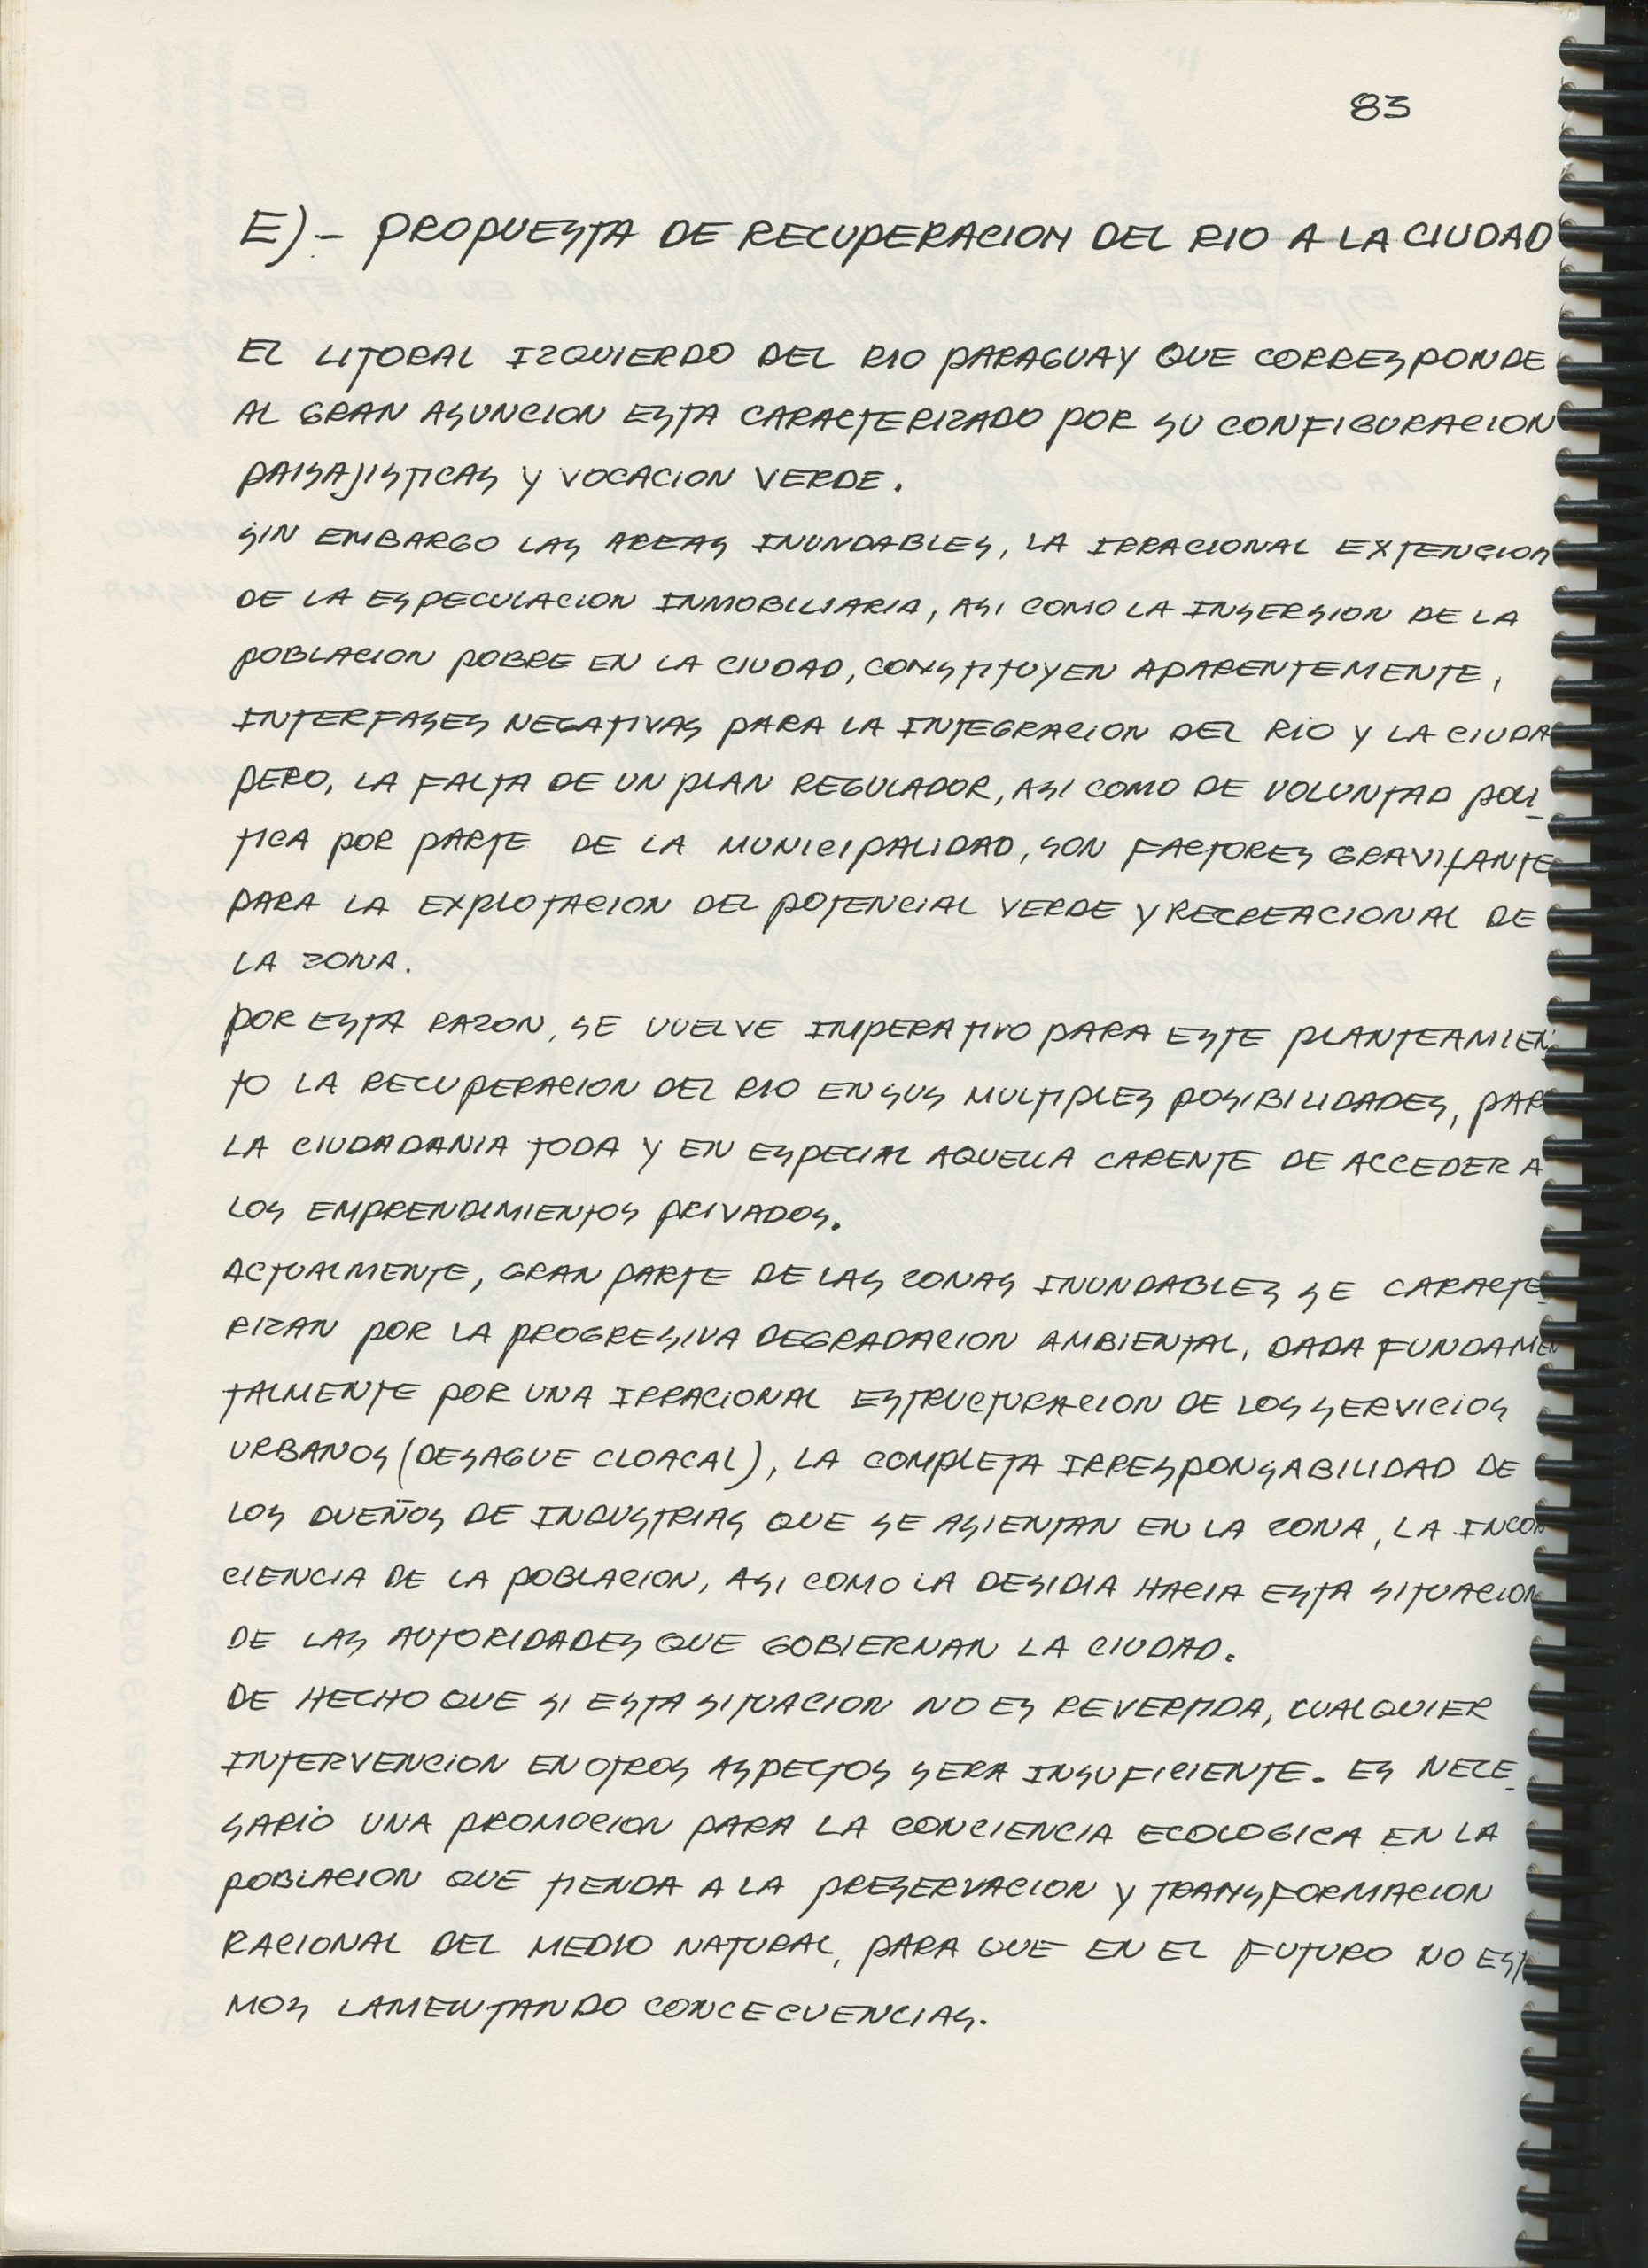 83
E)- PROPUESTA DE RECUPERACION DEL RIO A LA CIUDAD
EL LITORAL IZQUIERDO DEL RIO PARAGUAY QUE CORRESPONDE
AL GRAN ASUNCION ESTA CARACTERIZADO POR SU CONFIGURACION
PAISAJISTICAS Y VOCACION VERDE.
SIN EMBARGO LAS AREAS INUNDABLES, LA IRRACIONAL EXTENCION
DE LA ESPECULACION INMOBILIARIA, ASI COMO LA INSERSION DE LA
POBLACION POBRE EN LA CIUDAD, CONSTITUYEN APARENTEMENTE,
INTERFASES NEGATIVAS PARA LA INTEGRACION DEL RIO Y LA CIUDA
PERO, LA FALTA DE UN PLAN REGULADOR, ASI COMO DE VOLUNTAD POLI_
TICA POR PARTE DE LA MUNICIPALIDAD, SON FACTORES GRAVITANTE
PARA LA EXPLOTACION DEL POTENCIAL VERDE Y RECREACIONAL DE
LA ZONA.
POR ESTA RAZON, SE VUELVE IMPERATIVO PARA ESTE PLANTEAMIEN
TO LA RECUPERACION DEL RIO EN SUS MULTIPLES POSIBILIDADES, PAR
LA CIUDADANIA TODA Y EN ESPECIAL AQUELLA CARENTE DE ACCEDER A
LOS EMPRENDIMIENTOS PRIVADOS.
ACTUALMENTE, GRAN PARTE DE LAS ZONAS INUNDABLES SE CARACTE_
RIZAN POR LA PROGRESIVA DEGRADACION AMBIENTAL, DADA FUNDAMEN
TALMENTE POR UNA IRRACIONAL ESTRUCTURACION DE LOS SERVICIOS
URBANOS (DESAGUE CLOACAL), LA COMPLETA IRRESPONSABILIDAD DE
LOS DUEÑOS DE INDUSTRIAS QUE SE ASIENTAN EN LA ZONA, LA INCON
CIENCIA DE LA POBLACION, ASI COMO LA DESIDIA HACIA ESTA SITUACION
DE LAS AUTORIDADES QUE GOBIERNAN LA CIUDAD.
DE HECHO QUE SI ESTA SITUACION NO ES REVERTIDA, CUALQUIER
INTERVENCION EN OTROS ASPECTOS SERA INSUFICIENTE. ES NECE_
SARIO UNA PROMOCION PARA LA CONCIENCIA ECOLOGICA EN LA
POBLACION QUE TIENDA A LA PRESERVACION Y TRANSFORMACION
RACIONAL DEL MEDIO NATURAL, PARA QUE EN EL FUTURO NO EST
MOS LAMENTANDO CONCECUENCIAS.